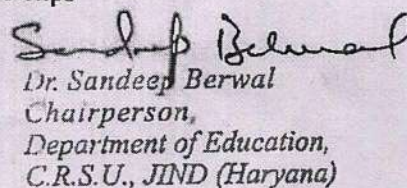 Sandeep Berwal
Dr. Sandeep Berwal
Chairperson,
Department of Education,
C.R.S.U., JIND (Haryana)